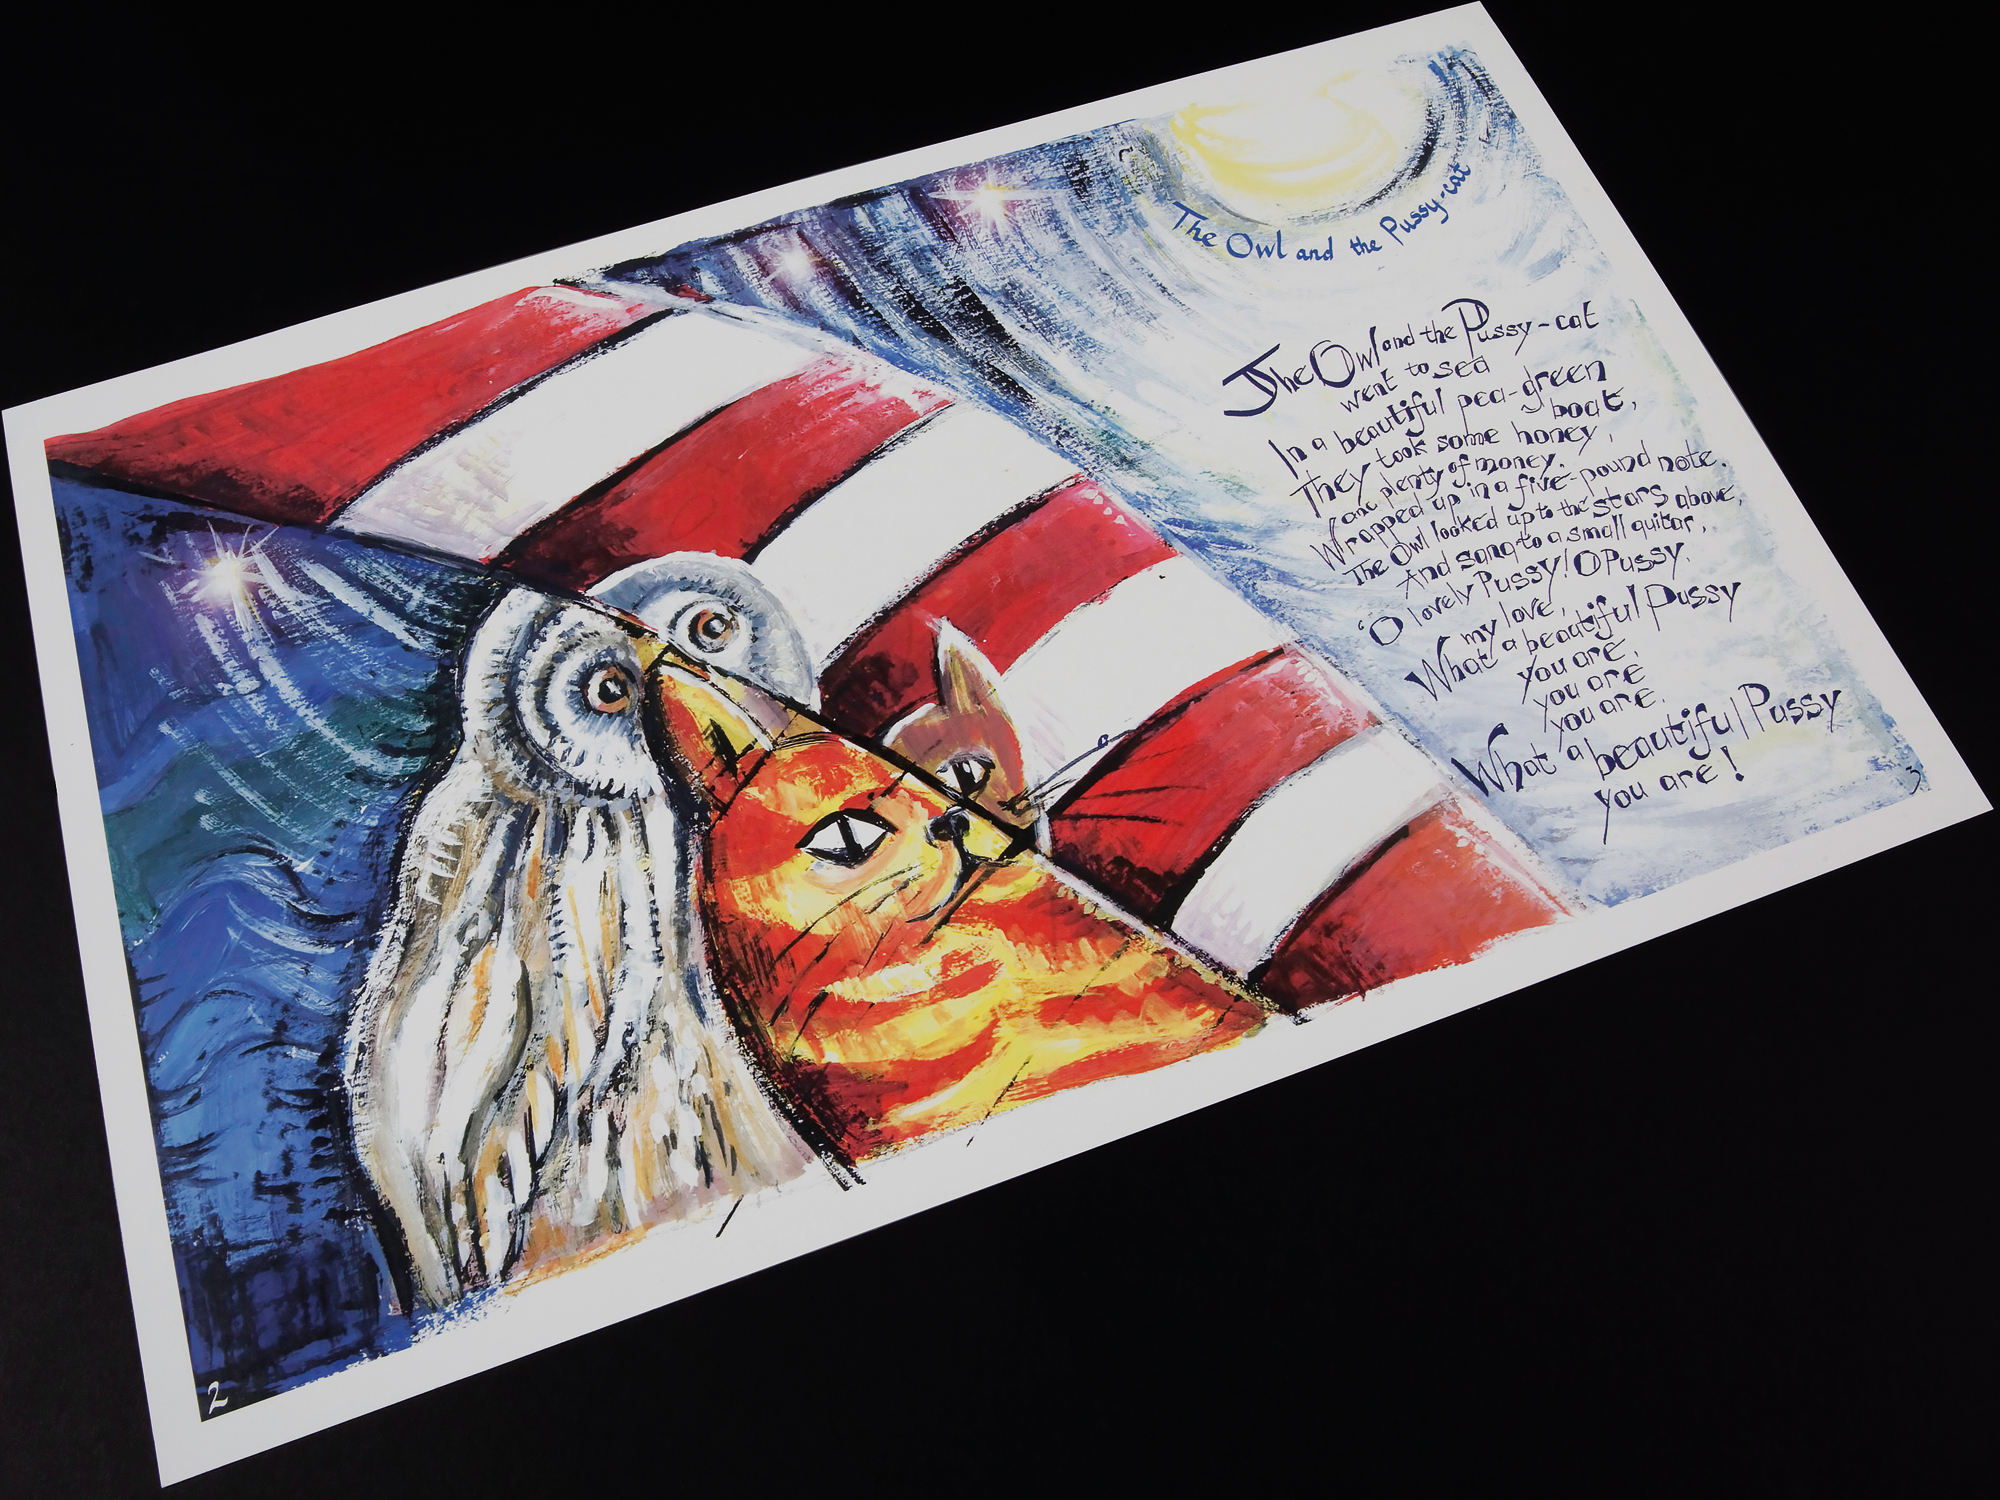 The Owl and the Pussy-cat
The Owl and the Pussy-cat
went to sea
In a beautiful pea-green
boat,
They took some honey,
and plenty of money,
Wrapped up in a five-pound note.
The Owl looked up to the stars above,
And sang to a small guitar,
"O lovely Pussy! O Pussy,
my love,
What a beautiful Pussy
you are,
you are
you are.
What a beautiful Pussy
you are!
2
3